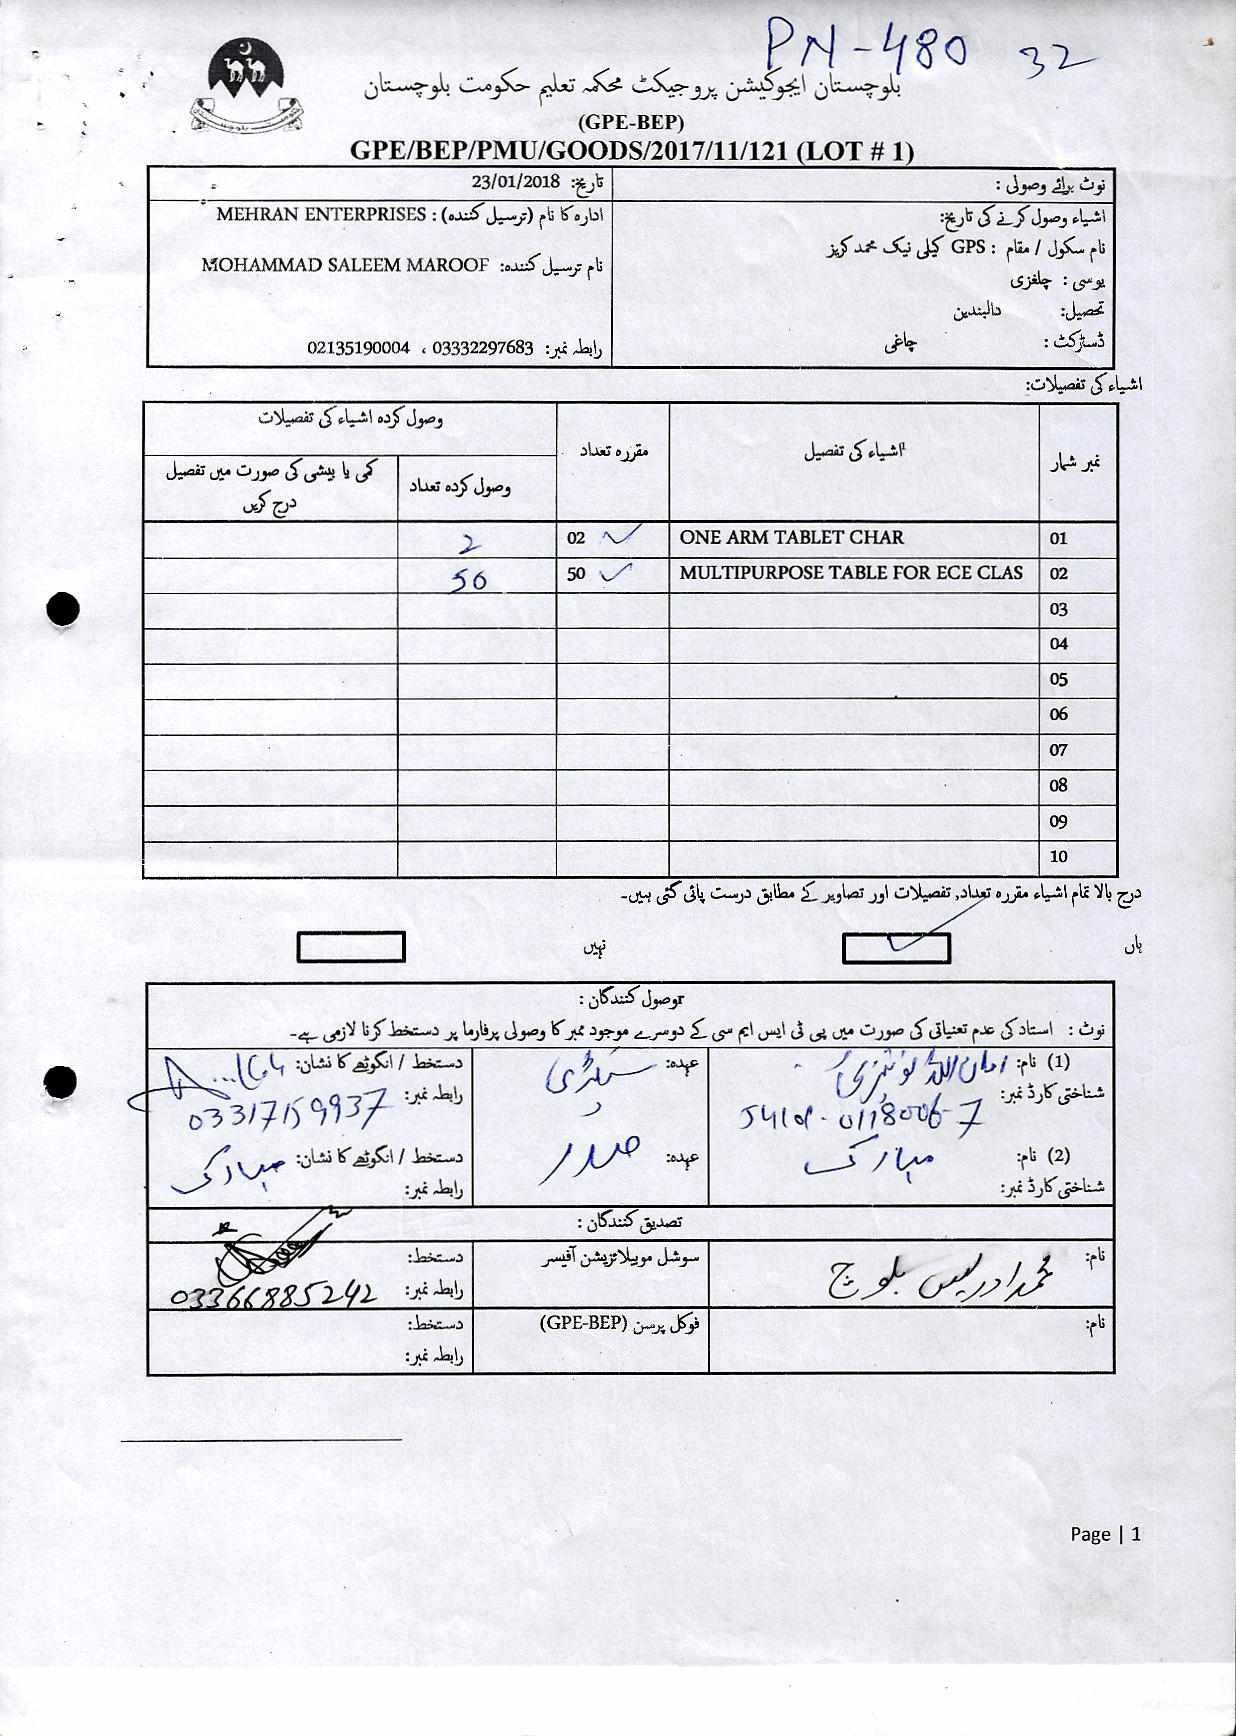 PN-480 32
بلوچستان ایجوکیشن پروجیکٹ محکمہ تعلیم حکومت بلوچستان
(GPE-BEP)
GPE/BEP/PMU/GOODS/2017/11/121 (LOT # 1)
نوٹ برائے وصولی :
تاریخ: 23/01/2018
اشیاء وصول کرنے کی تاریخ:
نام سکول / مقام : GPS کیلی نیک محمد کریز
یوسی : چلغزی
تحصیل: دالبندین
ڈسٹرکٹ : چاغی
ادارہ کا نام (ترسیل کنندہ) : MEHRAN ENTERPRISES
نام ترسیل کنندہ: MOHAMMAD SALEEM MAROOF
رابطہ نمبر: 03332297683 ، 02135190004
اشیاء کی تفصیلات:
نمبر شمار اشیاء کی تفصیل مقررہ تعداد وصول کردہ اشیاء کی تفصیلات
وصول کردہ تعداد کمی یا بیشی کی صورت میں تفصیل درج کریں
01 ONE ARM TABLET CHAR 02 2
02 MULTIPURPOSE TABLE FOR ECE CLAS 50 50
03
04
05
06
07
08
09
10
درج بالا تمام اشیاء مقررہ تعداد, تفصیلات اور تصاویر کے مطابق درست پائی گئی ہیں۔
ہاں نہیں
وصول کنندگان :
نوٹ : استاد کی عدم تعنیاتی کی صورت میں پی ٹی ایس ایم سی کے دوسرے موجود ممبر کا وصولی پرفارما پر دستخط کرنا لازمی ہے۔
(1) نام: امان اللہ عہدہ: سیکرٹری دستخط / انگوٹھے کا نشان:
شناختی کارڈ نمبر: رابطہ نمبر: 03317159937
(2) نام: مبارک عہدہ: صدر دستخط / انگوٹھے کا نشان: مبارک
شناختی کارڈ نمبر: رابطہ نمبر:
تصدیق کنندگان :
نام: محمد ادریس بلوچ سوشل موبیلائزیشن آفیسر دستخط:
رابطہ نمبر: 03366885242
نام: فوکل پرسن (GPE-BEP) دستخط:
رابطہ نمبر:
Page | 1